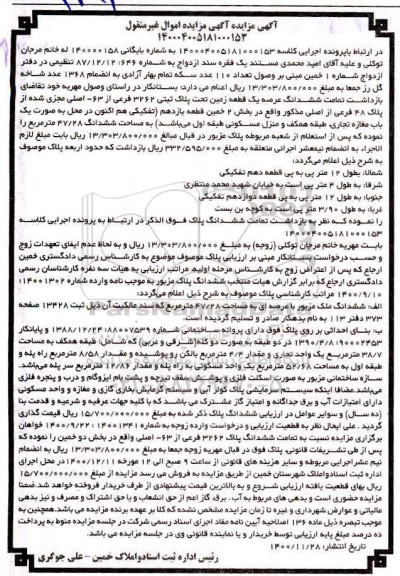 آگهی مزایده آگهی مزایده اموال غیرمنقول
۱۴۰۰۰۴۰۰۵۱۸۱۰۰۰۱۵۳
در ارتباط باپرونده اجرایی کلاسه ۱۴۰۰۰۴۰۰۵۱۸۱۰۰۰۱۵۳ به شماره بایگانی ۱۴۰۰۰۰۱۵۸ له خانم مرجان
توکلی و علیه آقای امید محمدی مستند یک فقره سند ازدواج به شماره ۶۴۶: ۸۷/۱۲/۱۲ تنظیمی در دفتر
ازدواج شماره ۱ خمین مبنی بر وصول تعداد ۱۱۰ عدد سکه تمام بهار آزادی به انضمام ۱۳۶۸ عدد شاخه
گل رز جمعا به مبلغ ۱۳/۳۰۳/۸۰۰/۰۰۰ ریال اعلام می دارد: بستانکار در راستای وصول مهریه خود تقاضای
بازداشت تمامت ششدانگ عرصه یک قطعه زمین تحت پلاک ثبتی ۳۲۶۲ فرعی از ۶۳- اصلی مجزی شده از
پلاک ۴۸ فرعی از اصلی مذکور واقع در بخش ۲ خمین قطعه یازدهم (تفکیکی هم اکنون در محل به صورت یک
باب مغازه تجاری، طبقه همکف و منزل مسکونی طبقه اول می‌باشد) به مساحت ششدانگ ۴۷/۲۸ مترمربع را
نموده که پس از استعلام از شعبه مربوطه پلاک مزبور در قبال مبالغ ۱۳/۳۰۳/۸۰۰/۰۰۰ ریال بابت مبلغ لازم
الاجراء به انضمام نیمعشر اجرائی متعلقه به مبلغ ۳۳۲/۵۹۵/۰۰۰ ریال بازداشت که حدود اربعه پلاک موصوف
به شرح ذیل اعلام می‌گردد:
شمالا: بطول ۱۲ متر پی به پی قطعه دهم تفکیکی
شرقا: به طول ۴ متر پی است به خیابان شهید محمد منتظری
جنوبا: به طول ۱۲ متر پی به پی قطعه دوازدهم تفکیکی
غربا: به طول ۳/۹۰ متر پی است به کوچه بن بست
را نموده که نظر به بازداشت تمامت ششدانگ پلاک فوق الذکر در ارتباط به پرونده اجرایی کلاسه
۱۴۰۰۰۴۰۰۵۱۸۱۰۰۰۱۵۳
بابت مهریه خانم مرجان توکلی (زوجه) به مبلغ ۱۳/۳۰۳/۸۰۰/۰۰۰ ریال و به لحاظ عدم ایفای تعهدات زوج
و حسب درخواست بستانکار مبنی بر ارزیابی پلاک موصوف موضوع به کارشناس رسمی دادگستری خمین
ارجاع که پس از اعتراض زوج به کارشناس مرحله اولیه، مراتب ارزیابی به هیات سه نفره کارشناسان رسمی
دادگستری ارجاع که برابر گزارش هیات منتخب ششدانگ پلاک مزبور به موجب نامه وارده شماره ۱۳۰۲: ۱۴۰۰
۱۴۰۰/۹/۱۰ مراتب کارشناسی پلاک موصوف به شرح ذیل اعلام می‌گردد:
الف: ششدانگ ملک مزبور به عرصه به مساحت ۴۷/۲۸ مترمربع که سند مالکیت آن ذیل ثبت ۱۳۴۲۸ صفحه
۳۷۳ دفتر ۱۱۳ به نام بدهکار صادر و تسلیم گردیده است.
ب: بنای احداثی بر روی پلاک فوق دارای پروانه ساختمانی شماره ۸۸۰۰۷۵۳۹: ۱۳۸۸/۱۲/۲۴ و پایانکار
۹۰۰۰۲۴۵۳: ۱۳۹۰/۴/۸ در دو طبقه به صورت دو کله(شرقی و غربی) که شامل: طبقه همکف به مساحت
۳۸/۷ مترمربع یک واحد تجاری و مقدار ۴/۲ مترمربع بالکن رو پوشیده و مقدار ۸/۵۸ مترمربع راه پله و
طبقه اول به مساحت ۵۲/۶۸ مترمربع یک واحد مسکونی به راه پله و مقدار ۱۲/۸۶ مترمربع سر پله می‌باشد.
سازه ساختمانی مزبور به صورت اسکلت فلزی و پوشش سقف تیرچه و پشت بام ایزوگام و درب و پنجره فلزی
می‌باشد. مضافا اینکه سیستم سرمایشی پلاک کولر آبی و سیستم گرمایش بخاری گازی و مغازه و واحد مسکونی
دارای امتیازات آب و برق جداگانه و امتیاز گاز مشترک می باشد که با کلیه جهات مرغوبیه و شرعیه و قدمت بنا
(ده سال) و سوابق عوامل در ارزیابی ششدانگ پلاک ذکر شده به مبلغ ۱۵/۷۰۰/۰۰۰/۰۰۰ ریال قیمت گذاری
گردید. علی ایحال نظر به قطعیت ارزیابی و درخواست وارده زوجه به شماره ۱۴۰۰۱۳۴۱: ۱۴۰۰/۹/۲۲ خواهان
برگزاری مزایده نسبت به تمامت ششدانگ پلاک ۳۲۶۲ فرعی از ۶۳- اصلی واقع در بخش دو خمین را نموده که
پس از طی تشریفات قانونی، پلاک فوق در قبال مهریه زوجه جمعا به مبلغ ۱۳/۳۰۳/۸۰۰/۰۰۰ ریال به انضمام
نیم عشراجرایی مربوطه و سایر هزینه های قانونی از ساعت ۹ صبح الی ۱۲ مورخه ۱۴۰۰/۱۲/۱۱ در محل اجرای
اداره ثبت اسنادواملاک شهرستان خمین از طریق مزایده به فروش می رسد مزایده از مبلغ ۱۵/۷۰۰/۰۰۰/۰۰۰
ریال بهای کارشناسی قطعیت یافته ارزیابی شروع و به بالاترین قیمت پیشنهادی از طرف خریدار فروخته خواهد شد.ضمنا
مزایده حضوری است و بدهی های مربوط به آب، برق، گاز اعم از حق انشعاب و یا حق اشتراک و مصرف و نیز بدهی
مالیاتی و عوارض شهرداری و غیره تا زمان مزایده مشخص نشده که کلا بر عهده برنده مزایده می باشد.همچنین به
موجب تبصره ذیل ماده ۱۳۶ اصلاحیه آیین نامه مفاد اجرای اسناد رسمی شرکت در جلسه مزایده منوط به پرداخت
ده درصد مبلغ پایه ارزیابی توسط خریدار و یا نماینده قانونی وی در جلسه مزایده می باشد.
تاریخ انتشار: ۱۴۰۰/۱۱/۲۸
رئیس اداره ثبت اسنادواملاک خمین - علی جوگری